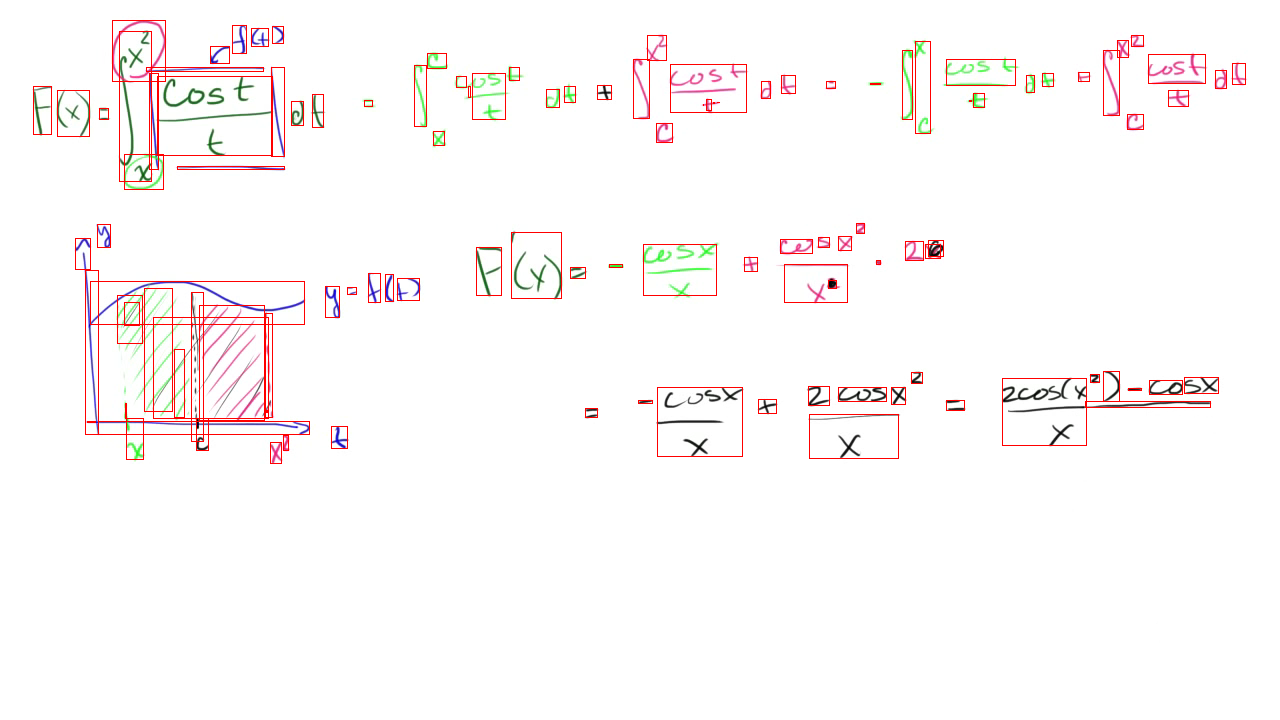 F(x) = ∫_x^{x²} [cos t / t] dt = ∫_x^c cos t / t dt + ∫_c^{x²} cos t / t dt = - ∫_c^x cos t / t dt = ∫_c^{x²} cos t / t dt
f(t)
y
F(x) = - cos x / x + cos x² / x · 2
y = f(t)
= - cos x / x + 2 cos x² / x = 2cos(x²) - cos x / x
x c x² t